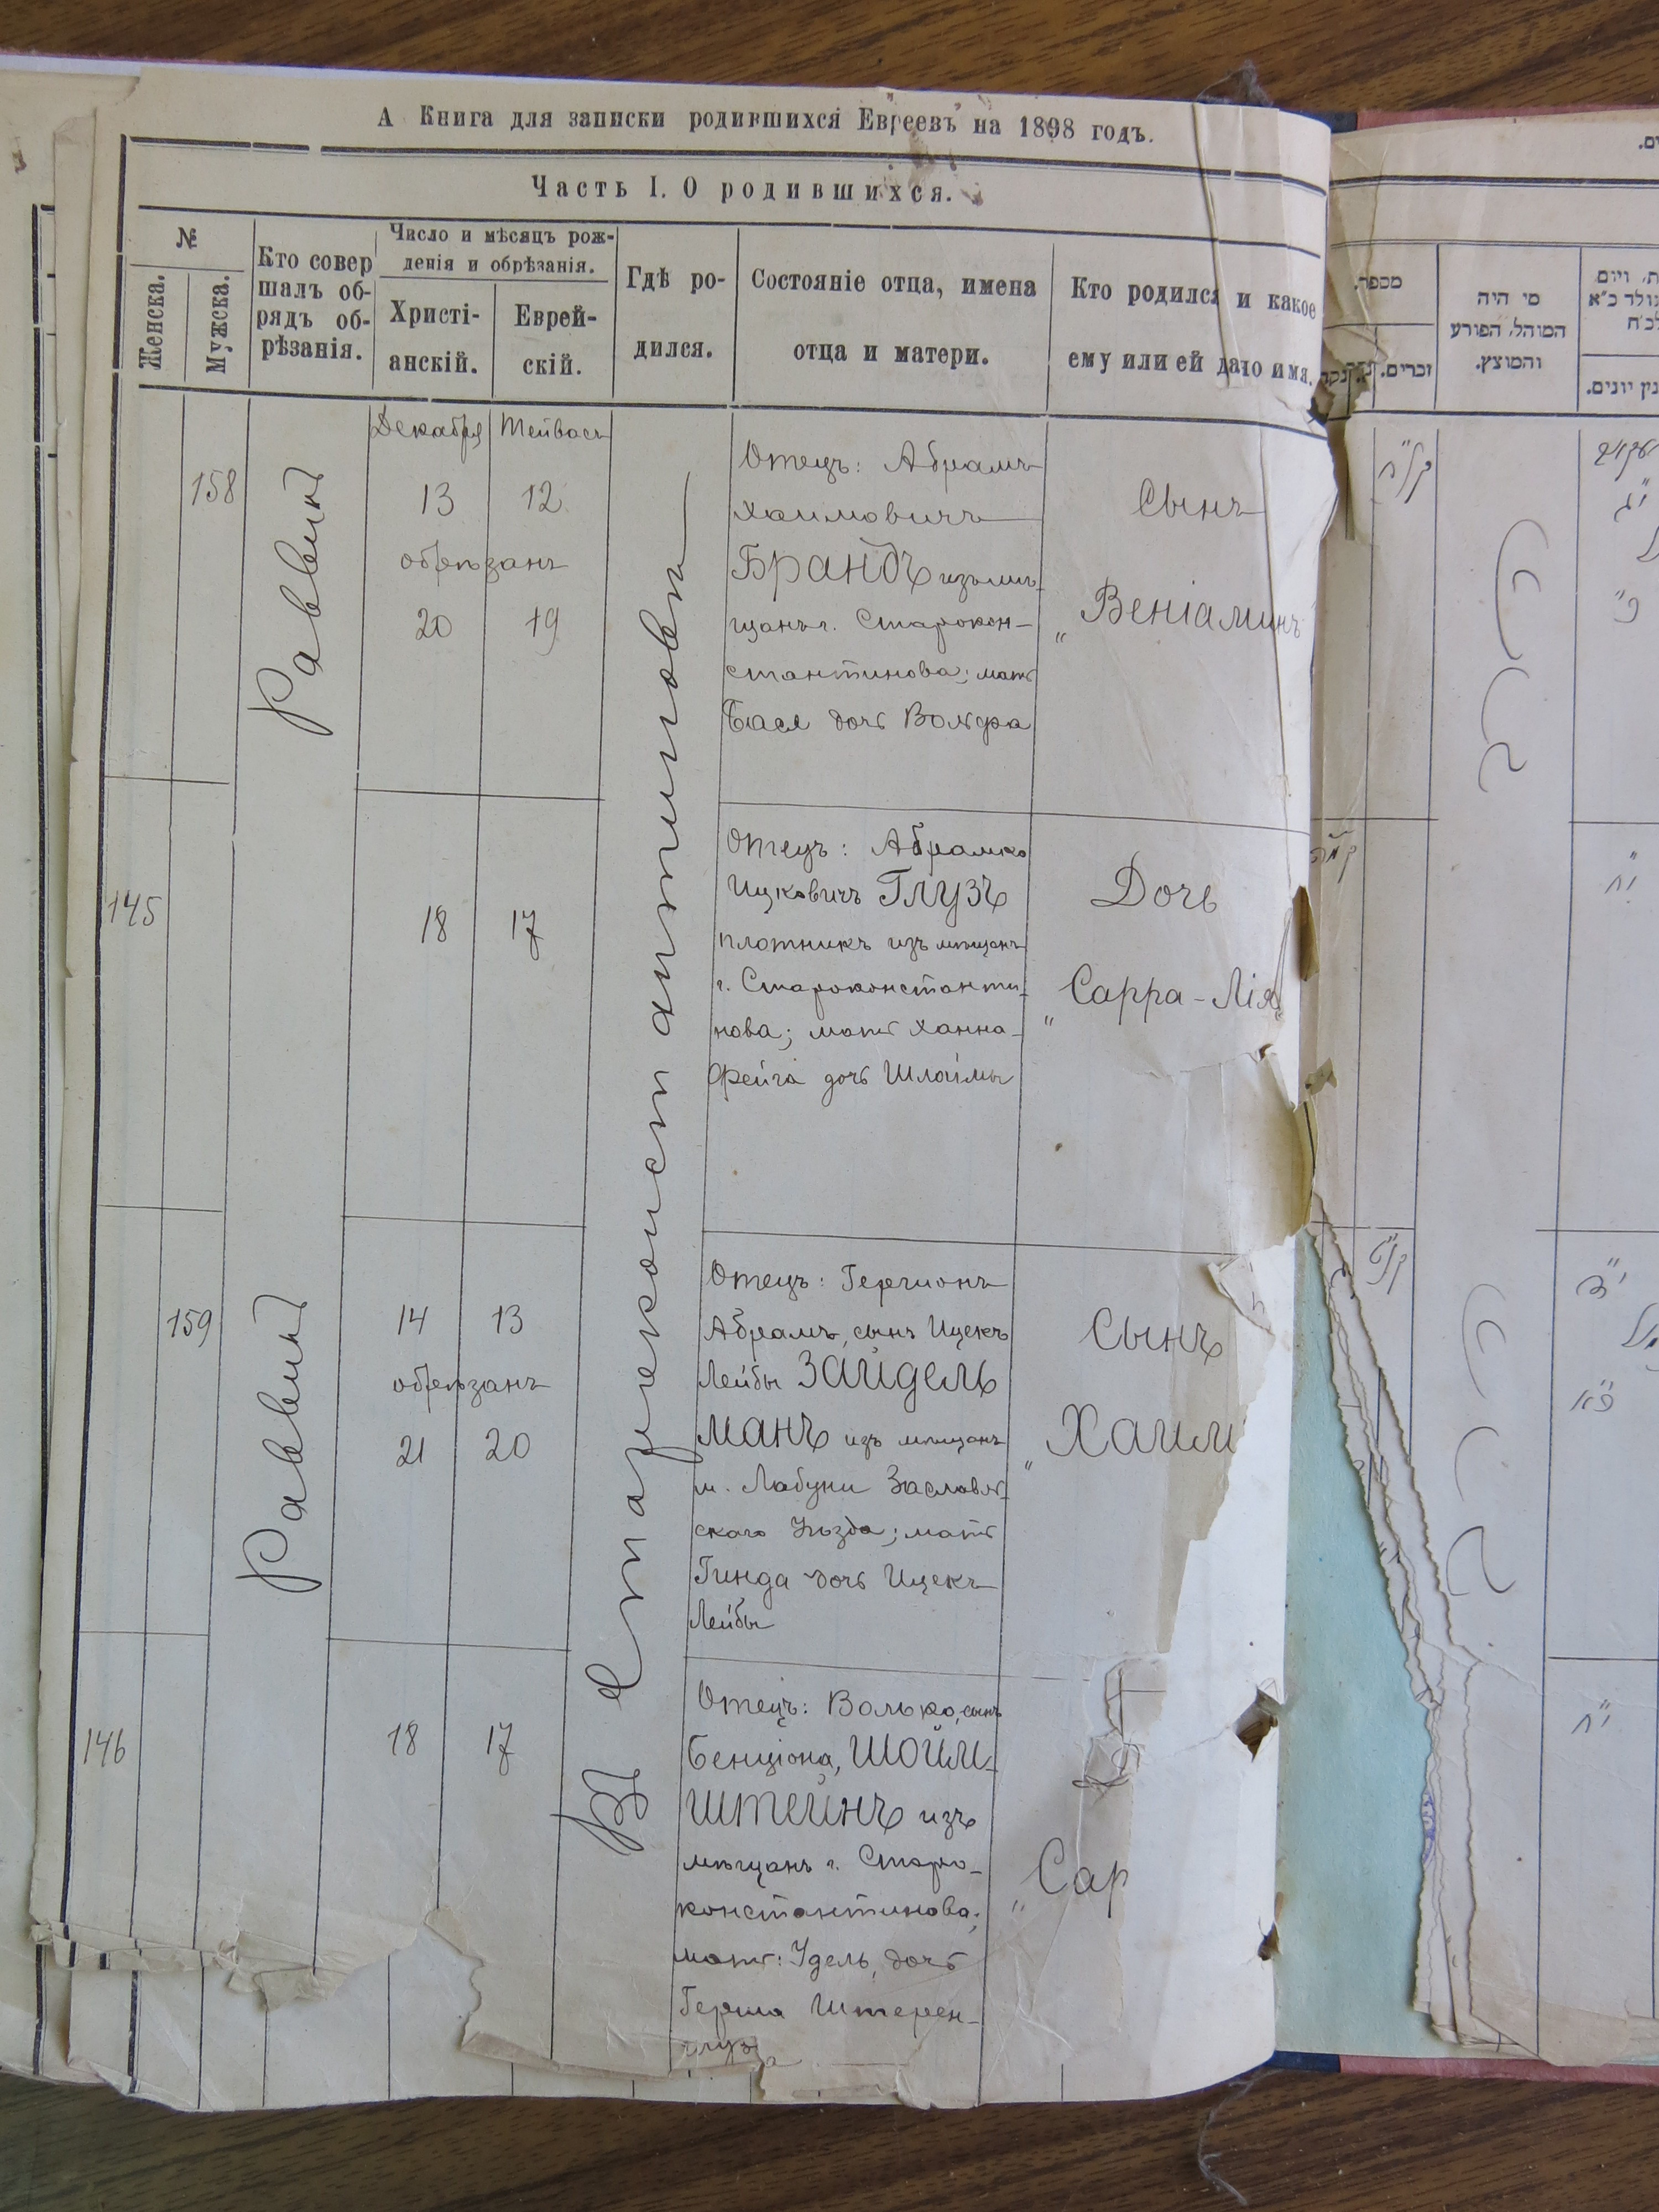 А Книга для записки родившихся Евреевъ на 1898 годъ.
Часть I. О родившихся.
№
Женска.
Мужска.
Кто совер
шалъ об-
рядъ об-
рѣзанія.
Число и мѣсяцъ рож-
денія и обрѣзанія.
Христі-
анскій.
Еврей-
скій.
Гдѣ ро-
дился.
Состояніе отца, имена
отца и матери.
Кто родился и какое
ему или ей дато имя.
158
Раввинъ
Декабря
Тейвасъ
13
12
обрѣзанъ
20
19
Въ Староконстантиновѣ
Отецъ: Абрамъ
Хаимовичъ
Брандъ изъ мѣ-
щанъ г. Старокон-
стантинова; мать
Бася дочь Вольфа
Сынъ
„Веніаминъ
145
18
17
Отецъ: Абрамко
Ицковичъ Глузъ
плотникъ изъ мѣщанъ
г. Староконстанти-
нова; мать Ханна-
Фейга дочь Шлоймы
Дочь
„Сарра-Лія„
159
Раввинъ
14
13
обрѣзанъ
21
20
Отецъ: Гершонъ
Абрамъ, сынъ Ицекъ
Лейбы Зайдель
манъ изъ мѣщанъ
м. Лабуни Заславль-
скаго Уѣзда; мать
Гинда дочь Ицекъ
Лейбы
Сынъ
„Хаим
146
18
17
Отецъ: Волько, сынъ
Бенціона, Шойм-
штейнъ изъ
мѣщанъ г. Старо-
константинова;
мать: Удель, дочь
Герша Штерен-
Сар
מספר.
זכרים.
מי היה
המוהל, הפורע
והמוצץ.